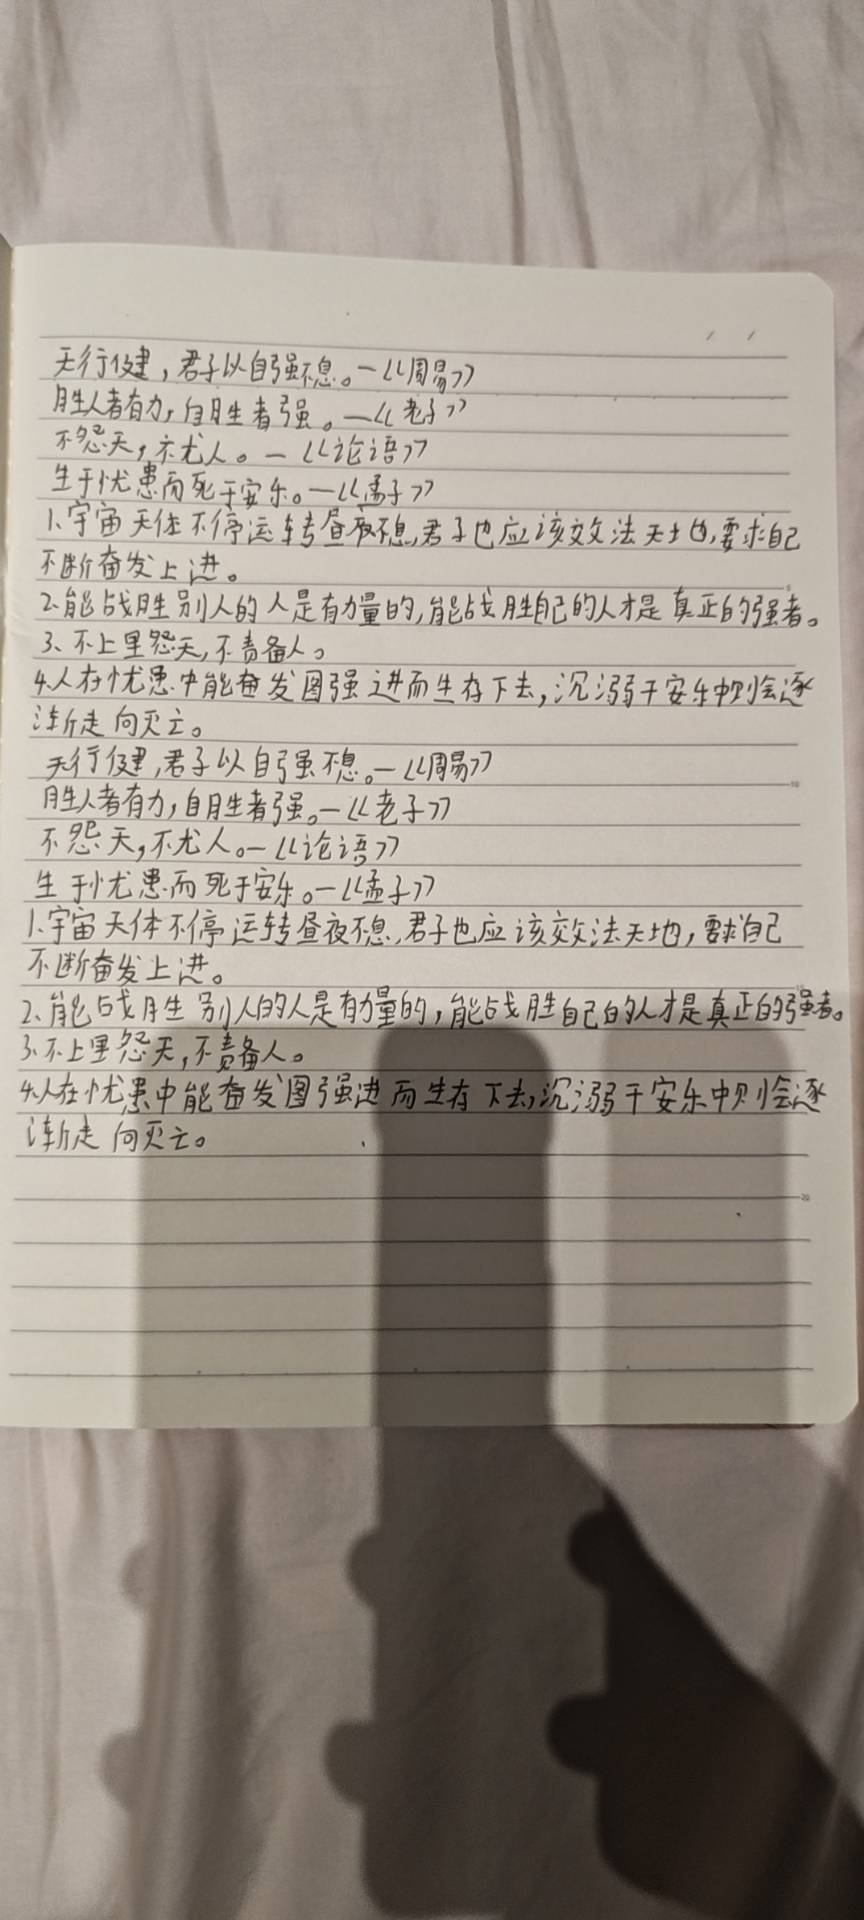 天行健，君子以自强不息。—《周易》
胜人者有力，自胜者强。—《老子》
不怨天，不尤人。—《论语》
生于忧患而死于安乐。—《孟子》
1、宇宙天体不停运转昼夜不息，君子也应该效法天地，要求自己
不断奋发上进。
2、能战胜别人的人是有力量的，能战胜自己的人才是真正的强者。
3、不上里怨天，不责备人。
4、人在忧患中能奋发图强进而生存下去，沉溺于安乐中则会逐
渐走向灭亡。
天行健，君子以自强不息。—《周易》
胜人者有力，自胜者强。—《老子》
不怨天，不尤人。—《论语》
生于忧患而死于安乐。—《孟子》
1、宇宙天体不停运转昼夜不息，君子也应该效法天地，要求自己
不断奋发上进。
2、能战胜别人的人是有力量的，能战胜自己的人才是真正的强者。
3、不上里怨天，不责备人。
4、人在忧患中能奋发图强进而生存下去，沉溺于安乐中则会逐
渐走向灭亡。